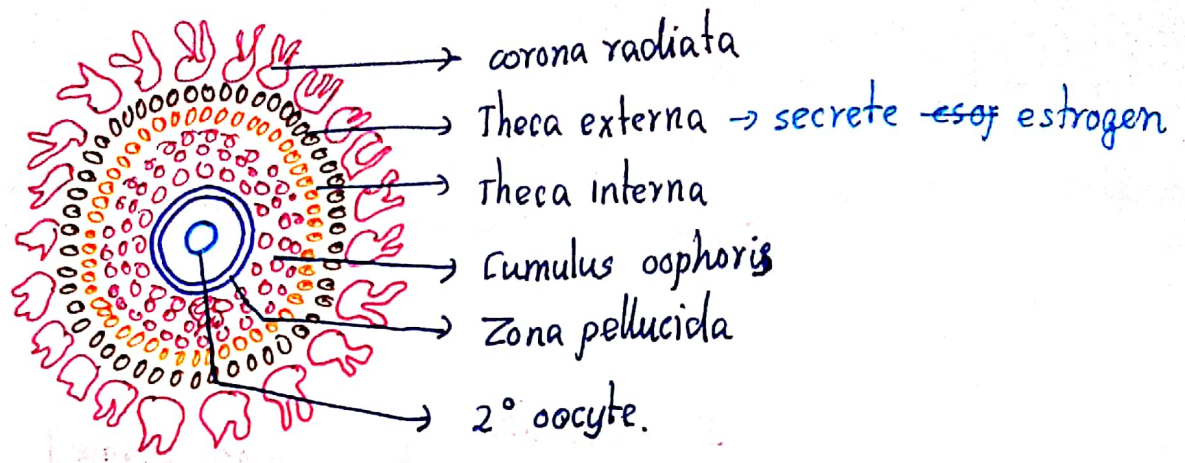 corona radiata
Theca externa → secrete esof estrogen
Theca interna
Cumulus oophoris
Zona pellucida
2° oocyte.